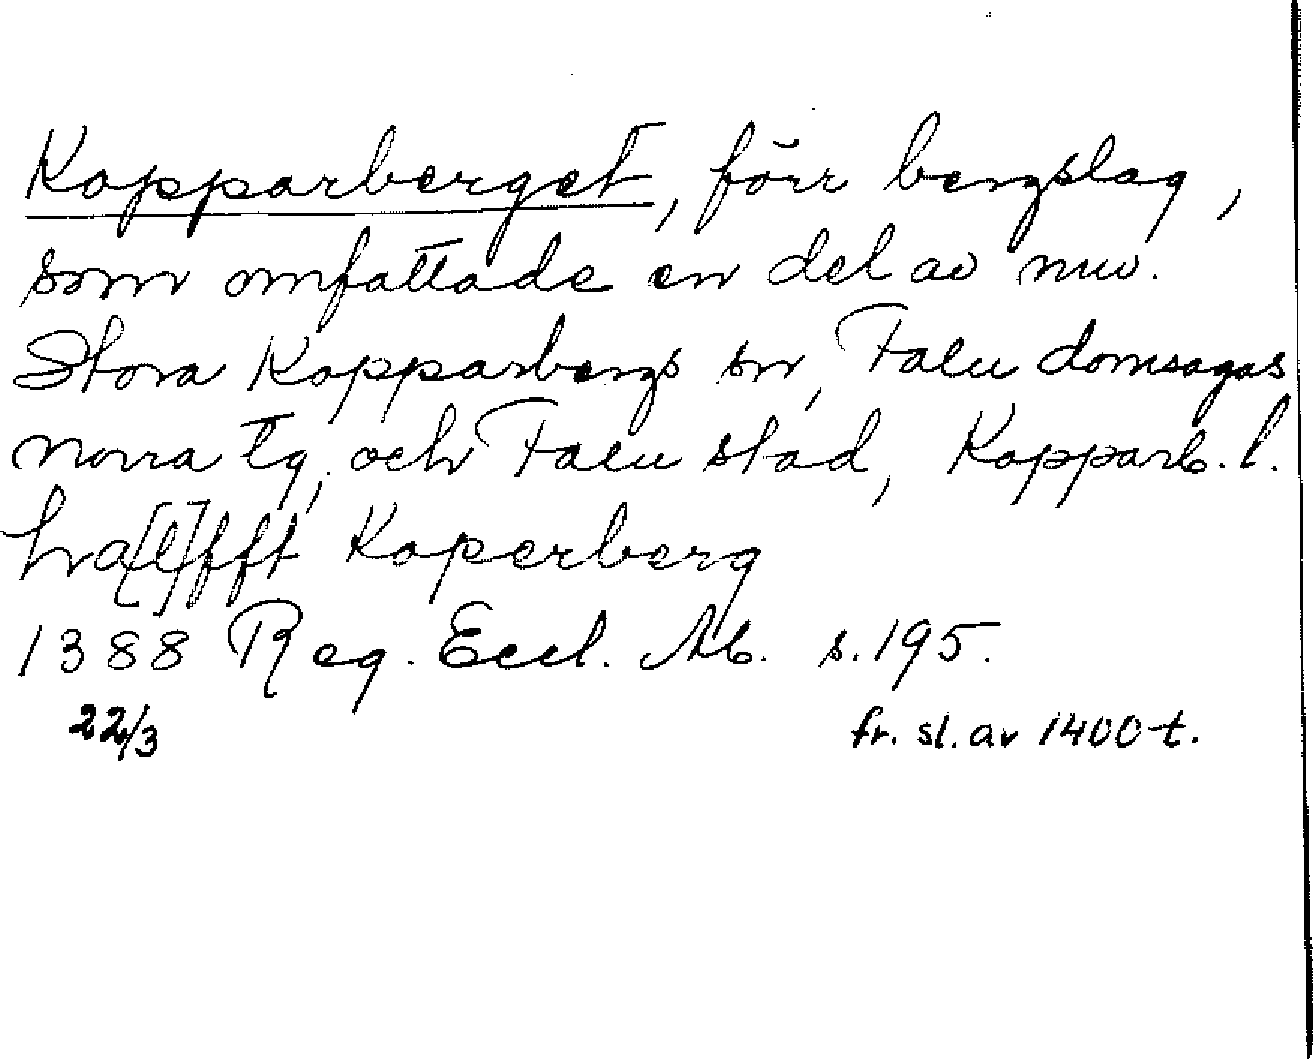 Kopparberget, förr bergslag,
som omfattade en del av nuv.
Stora Kopparbergs sn, Falu domsagas
norra tg, och Falu stad, Kopparb. l.
hra[l]fft Koperberg
1388 Reg. Eccl. Ab. s. 195.
22/3 fr. sl. av 1400-t.